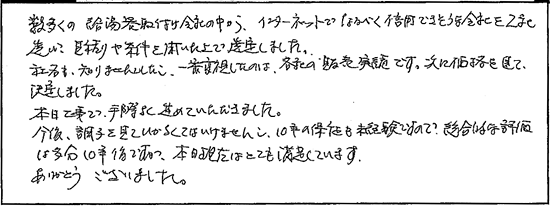 数多くの給湯器取付け会社の中から、インターネットでなるべく信用できそうな会社を2社
選び、見積りや条件を聞いた上で選定しました。
社名も、知りませんでしたし、一番重視したのは、各社の販売実績です。次に価格を見て、
決定しました。
本日工事で、手際よく進めていただきました。
今後、調子を見ていかなくてはいけませんし、10年の保証も未経験ですので、総合的な評価
は多分10年後ですが、本日現在はとても満足しています。
ありがとうございました。